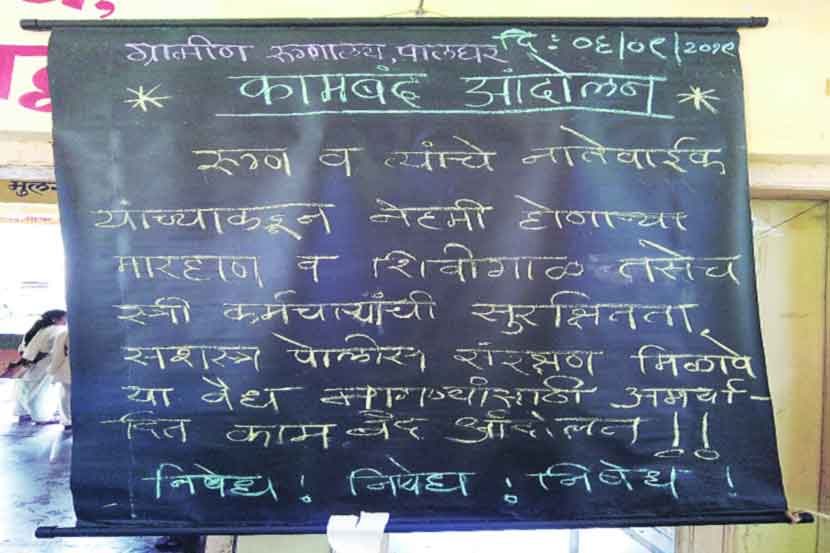 ग्रामीण रुग्णालय, पालघर दि: ०६/०९/२०१९
कामबंद आंदोलन
रुग्ण व त्यांचे नातेवाईक
यांच्याकडून नेहमी होणाऱ्या
मारहाण व शिवीगाळ तसेच
स्त्री कर्मचाऱ्यांची सुरक्षितता,
सशस्त्र पोलीस संरक्षण मिळावे
या वैध मागण्यांसाठी अमर्या-
दित कामबंद आंदोलन !!
निषेध ! निषेध ! निषेध !
मुल